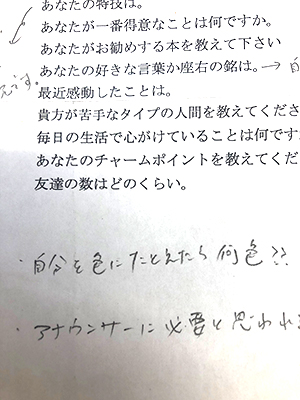 あなたの特技は。
あなたが一番得意なことは何ですか。
あなたがお勧めする本を教えて下さい
あなたの好きな言葉か座右の銘は。→
最近感動したことは。
貴方が苦手なタイプの人間を教えてくださ
毎日の生活で心がけていることは何です
あなたのチャームポイントを教えてくだ
友達の数はどのくらい。
・自分を色にたとえたら何色??
・アナウンサーに必要と思われ